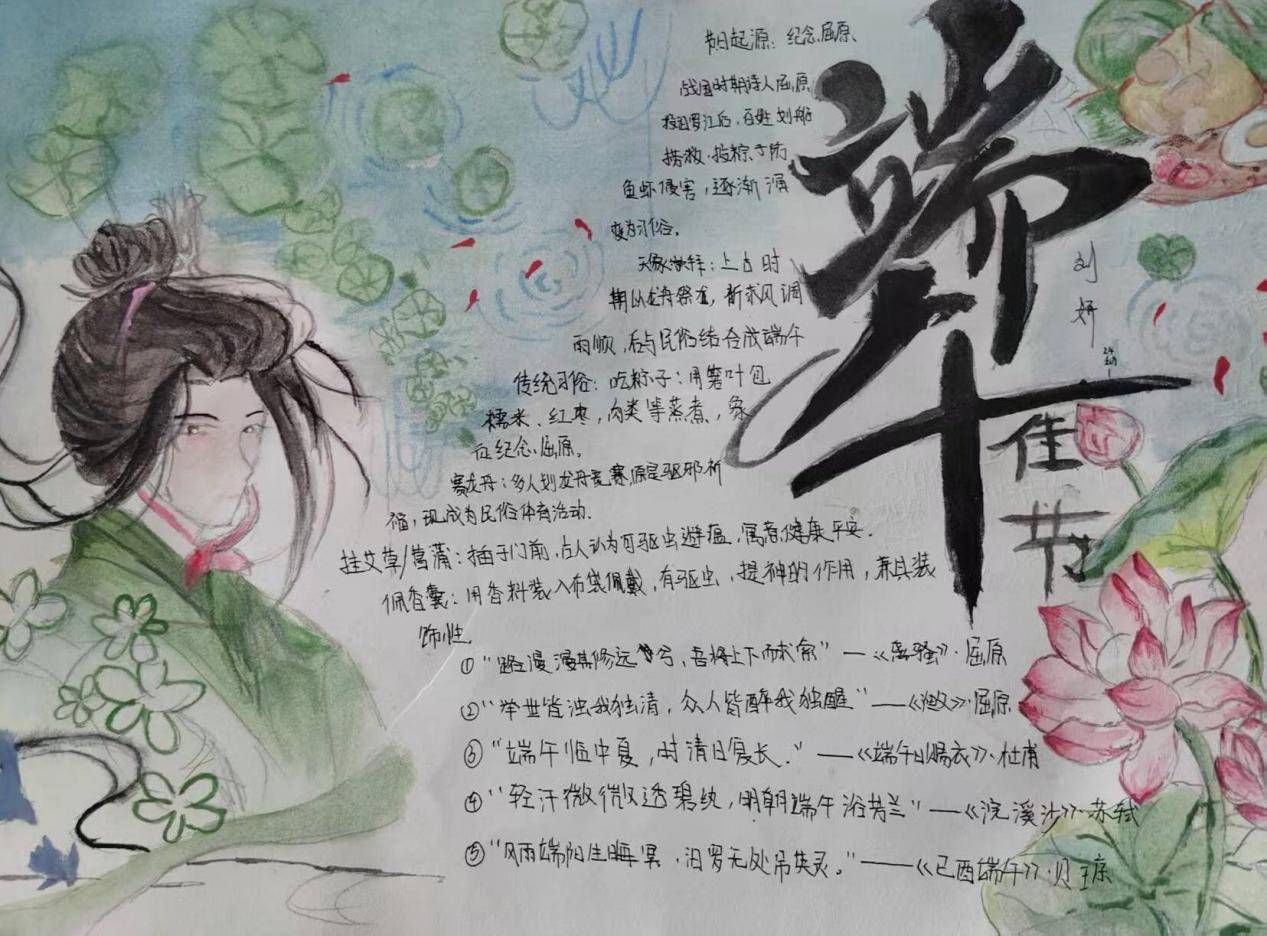 端午
佳节
刘
妍
节日起源：纪念屈原、
战国时期诗人屈原
投汨罗江后，百姓划船
捞救·投粽予防
鱼虾侵害，逐渐演
变为习俗。
：上古时
期以龙舟祭龙，祈求风调
雨顺，后与民俗结合成端午
传统习俗：吃粽子：用箬叶包
糯米、红枣，肉类等蒸煮，象
征纪念屈原。
赛龙舟：多人划龙舟竞赛，原是驱邪祈
福，现成为民俗体育活动.
挂艾草/菖蒲：插于门前，古人认为可驱虫避瘟，寓意健康平安.
佩香囊：用香料装入布袋佩戴，有驱虫，提神的作用，兼具装
饰性.
①“路漫漫其修远兮，吾将上下而求索”—《离骚》·屈原
②“举世皆浊我独清，众人皆醉我独醒”——《渔父》·屈原
③“端午临中夏，时清日复长.”—《端午日赐衣》·杜甫
④“轻汗微微透碧纨，明朝端午浴芳兰”—《浣溪沙》·苏轼
⑤“风雨端阳生晦冥，汨罗无处吊英灵。”——《已酉端午》·贝琼